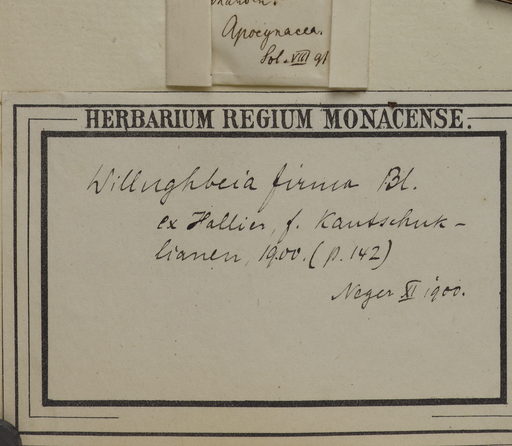 Apocynacea.
Sol. VIII 91
HERBARIUM REGIUM MONACENSE.
Willughbeia firma Bl.
ex Hallier, f. Kautschuk-
lianen, 1900. (p. 142)
Neger XI 1900.